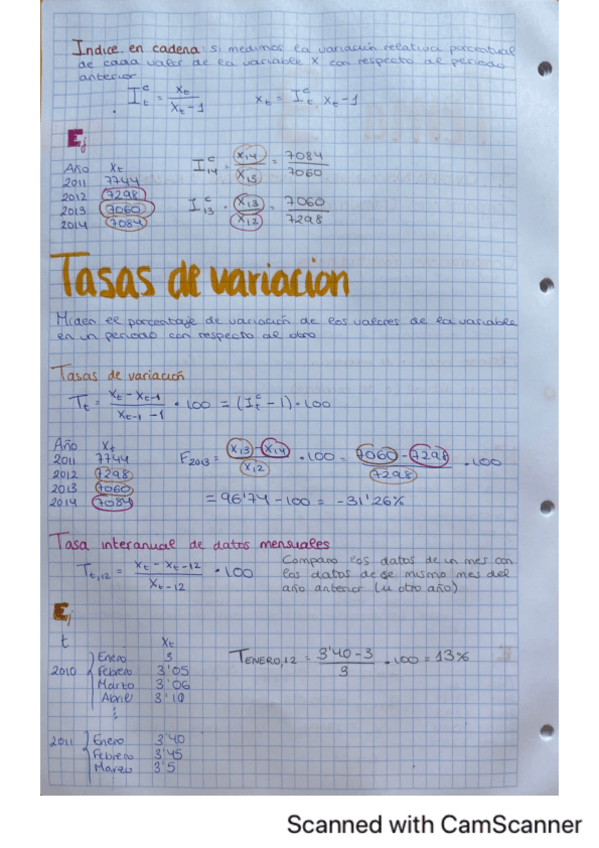 Indice en cadena: si medimos la variación relativa porcentual
de cada valor de la variable X con respecto al periodo
anterior
I_t^c = x_t / x_t-1    x_t = I_t^c · x_t-1
Ej
Año x_t
2011 7744
2012 7298
2013 7060
2014 7084
I_14^c = x_14 / x_13 = 7084 / 7060
I_13^c = x_13 / x_12 = 7060 / 7298
Tasas de variacion
Miden el porcentaje de variación de los valores de la variable
en un periodo con respecto al otro
Tasas de variación
T_t = (x_t - x_t-1) / (x_t-1 -1) · 100 = (I_t^c - 1) · 100
Año x_t
2011 7744
2012 7298
2013 7060
2014 7084
F_2013 = (x_13 - x_14) / x_12 · 100 = (7060 - 7298) / 7298 · 100
= 96'74 - 100 = -31'26%
Tasa interanual de datos mensuales
T_t,12 = (x_t - x_t-12) / x_t-12 · 100
Comparo los datos de un mes con
los datos de se mismo mes del
año anterior (u otro año)
Ej
t x_t
Enero 3
2010 Febrero 3'05
Marzo 3'06
Abril 3'10
2011 Enero 3'40
Febrero 3'45
Marzo 3'5
T_ENERO,12 = (3'40 - 3) / 3 · 100 = 13%
Scanned with CamScanner